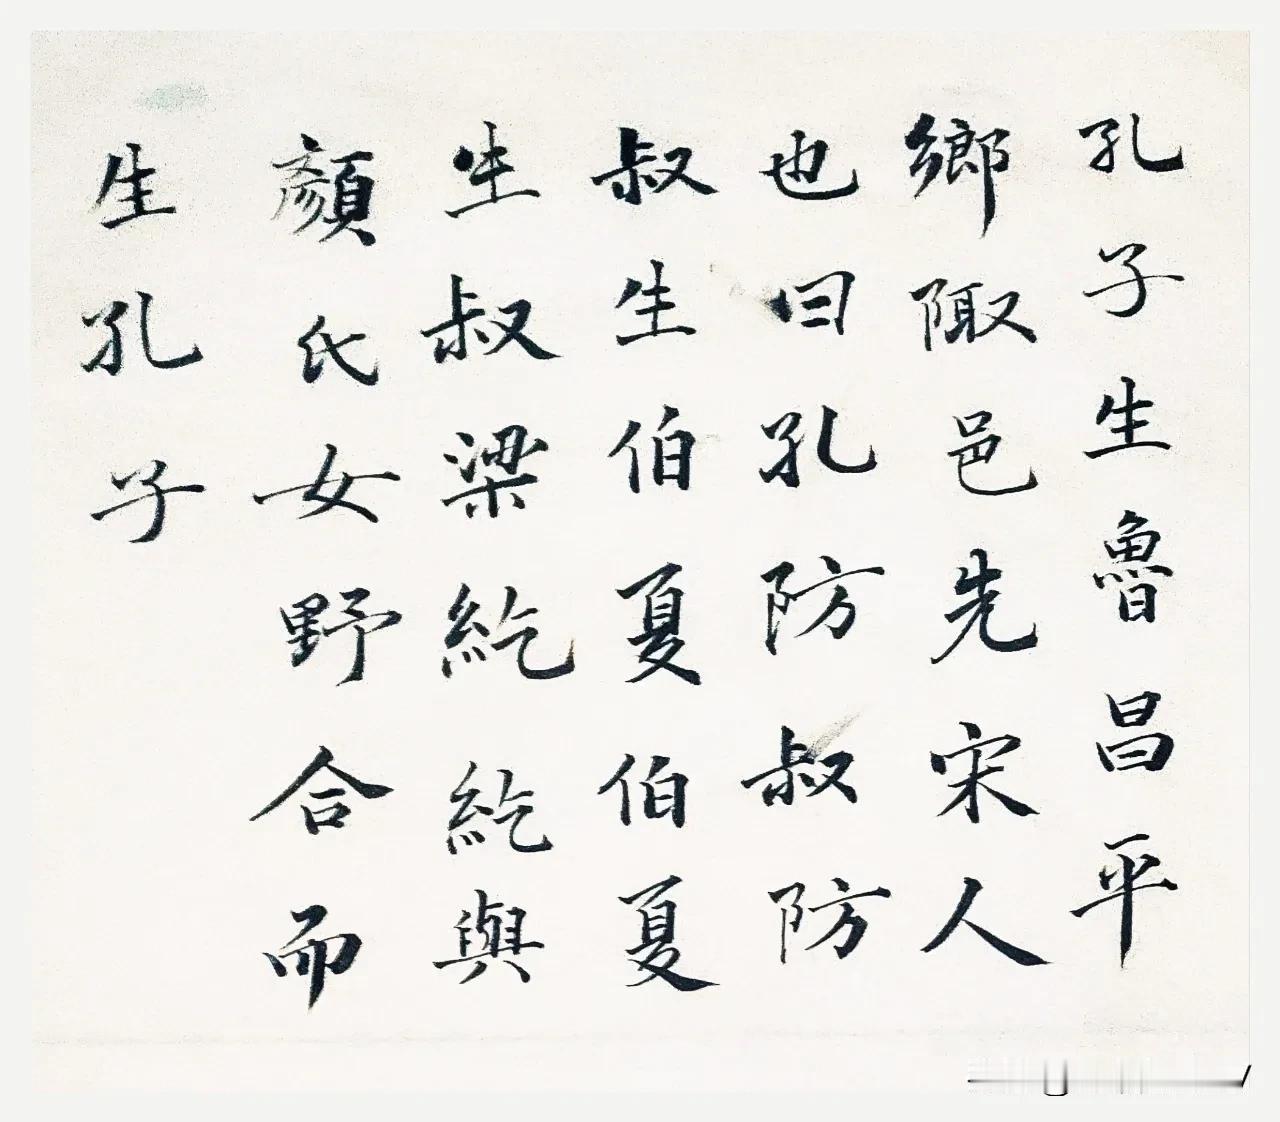 孔子生魯昌平
鄉陬邑先宋人
也曰孔防叔防
叔生伯夏伯夏
生叔梁紇紇與
顏氏女野合而
生孔子